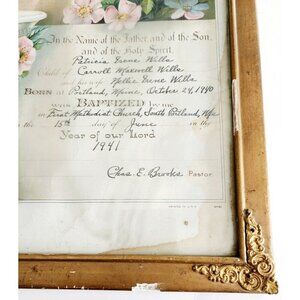 In the Name of the Father, and of the Son,
and of the Holy Spirit.
Patricia Irene Wills
Child of Carroll Maxwell Wills
and his wife Nellie Irene Wills
BORN at Portland, Maine, October 24, 1940
was BAPTIZED by me
in First Methodist Church, South Portland, Me
the 15th day of June in the
Year of our Lord
1941
Chas. E. Brooks Pastor.
PRINTED IN U.S.A.